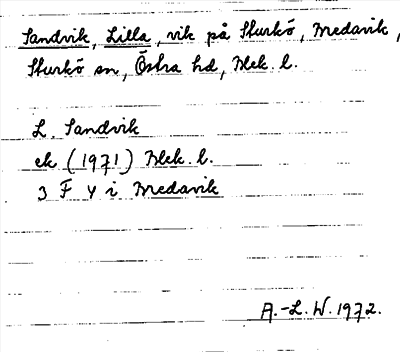 Sandvik, Lilla, vik på Sturkö, Bredavik,
Sturkö sn, Östra hd, Blek. l.
L. Sandvik
ek (1971) Blek. l.
3 F Y i Bredavik
A.-L. W. 1972.